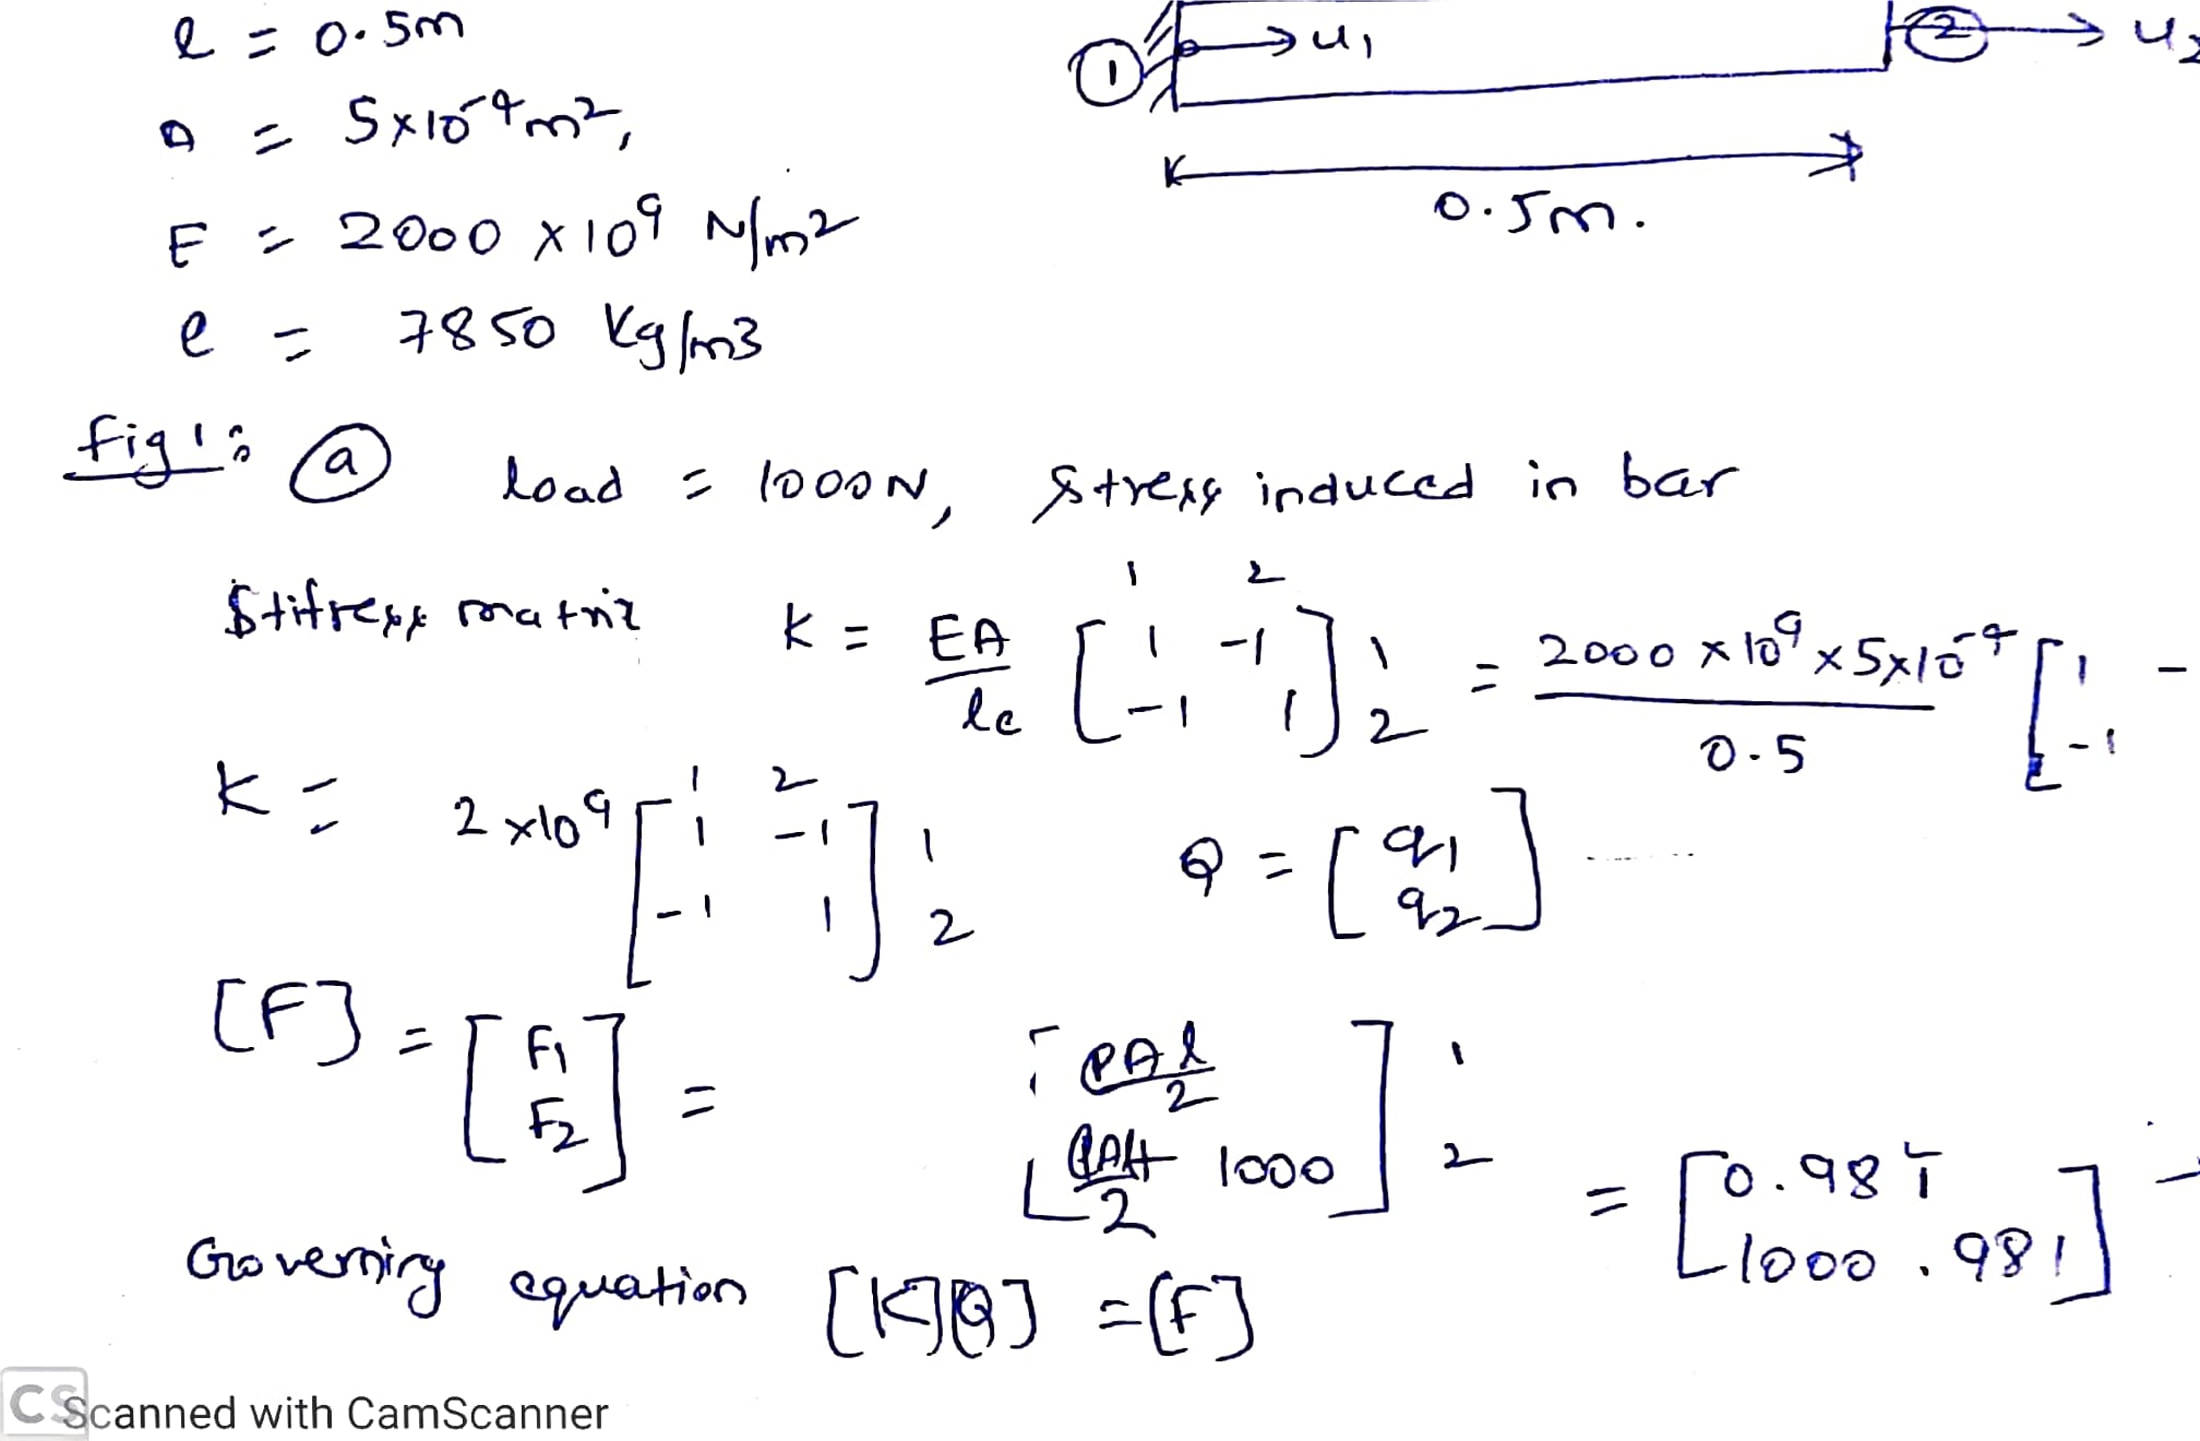 l = 0.5m
① → u1 ② → u2
A = 5×10^-4 m^2,
0.5m.
E = 2000 ×10^9 N/m^2
ρ = 7850 Kg/m3
fig 1: ⓐ load = 1000N, Stress induced in bar
1 2
Stifress matrix K = EA/le [1 -1; -1 1] 1 2 = 2000 ×10^9 ×5×10^-4/0.5 [1 -; -1
1 2
K = 2×10^9 [1 -1; -1 1] 1 2 Q = [q1; q2]
[F] = [F1; F2] = [ρAl/2; 1000] 1 2 = [0.981; 1000.981]
Governing equation [K][Q] = [F]
CS Scanned with CamScanner